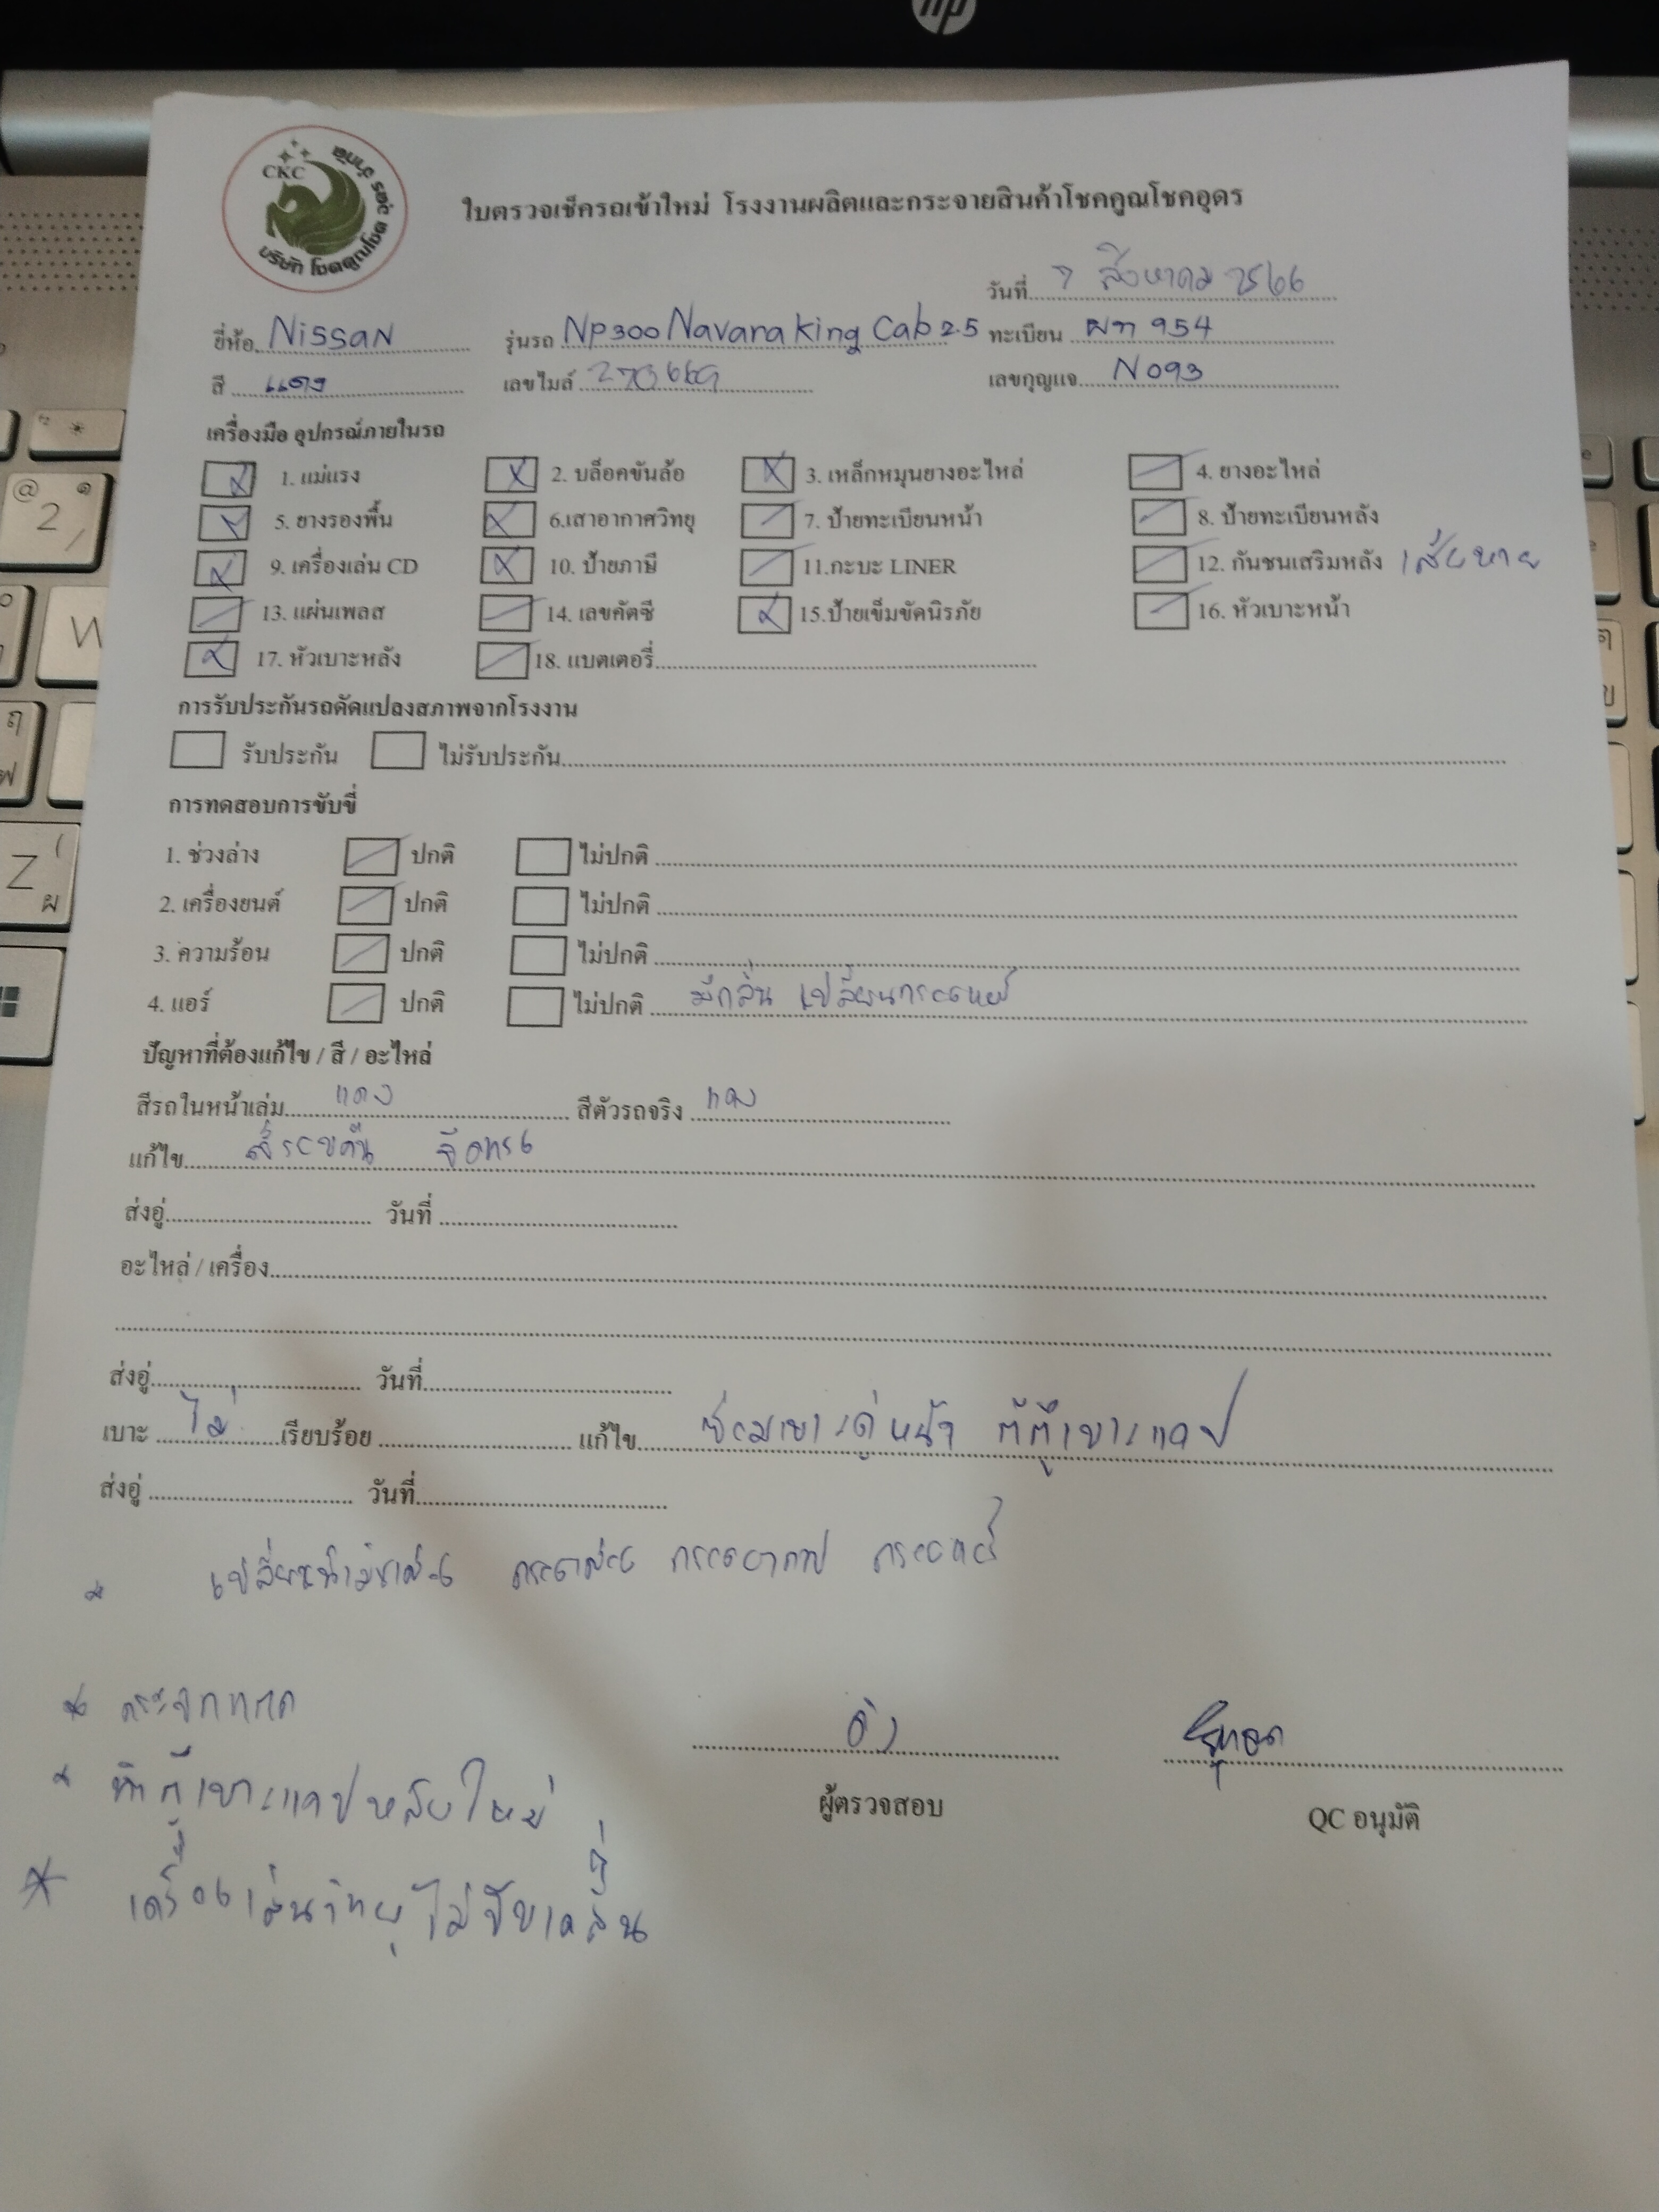 CKC
บริษัท โชคคูณโชค คาร์ จำกัด
ใบตรวจเช็ครถเข้าใหม่ โรงงานผลิตและกระจายสินค้าโชคคูณโชคอุดร
วันที่ 7 สิงหาคม 2566
ยี่ห้อ Nissan รุ่นรถ NP300 Navara King Cab 2.5 ทะเบียน ผท 954
สี แดง เลขไมล์ เลขกุญแจ N093
เครื่องมือ อุปกรณ์ภายในรถ
1. แม่แรง 2. บล็อคขันล้อ 3. เหล็กหมุนยางอะไหล่ 4. ยางอะไหล่
5. ยางรองพื้น 6.เสาอากาศวิทยุ 7. ป้ายทะเบียนหน้า 8. ป้ายทะเบียนหลัง
9. เครื่องเล่น CD 10. ป้ายภาษี 11.กะบะ LINER 12. กันชนเสริมหลัง เสียหาย
13. แผ่นเพลส 14. เลขคัตซี 15.ป้ายเข็มขัดนิรภัย 16. หัวเบาะหน้า
17. หัวเบาะหลัง 18. แบตเตอรี่
การรับประกันรถดัดแปลงสภาพจากโรงงาน
รับประกัน ไม่รับประกัน
การทดสอบการขับขี่
1. ช่วงล่าง ปกติ ไม่ปกติ
2. เครื่องยนต์ ปกติ ไม่ปกติ
3. ความร้อน ปกติ ไม่ปกติ
4. แอร์ ปกติ ไม่ปกติ มีกลิ่น เปลี่ยนกรองแอร์
ปัญหาที่ต้องแก้ไข / สี / อะไหล่
สีรถในหน้าเล่ม แดง สีตัวรถจริง แดง
แก้ไข สีรอบคัน
ส่งอู่ วันที่
อะไหล่ / เครื่อง
ส่งอู่ วันที่
เบาะ ไม่ เรียบร้อย แก้ไข ซ่อมเบาะคู่หน้า เบาะแคป
ส่งอู่ วันที่
* เปลี่ยนน้ำมันเครื่อง กรองเครื่อง กรองอากาศ กรองแอร์
* กระจกแตก
* ทำตู้เบาะแคปหลังใหม่
* เครื่องเล่นวิทยุไม่จับคลื่น
ผู้ตรวจสอบ QC อนุมัติ